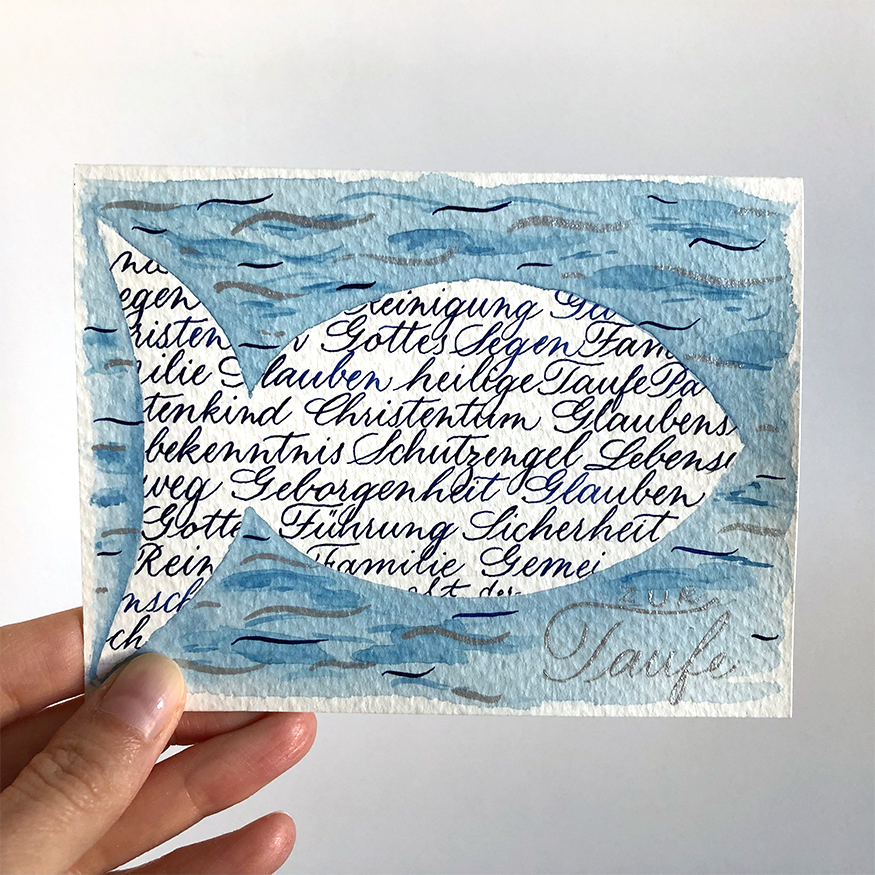 egen Reinigung Ga
risten Gottes Segen Fam
ilie Glauben heilige Taufe Pa
tenkind Christentum Glaubens
bekenntnis Schutzengel Lebens
weg Geborgenheit Glauben
Gotte Führung Sicherheit
Rein Familie Gemei
nsch
ch
ZUR
Taufe